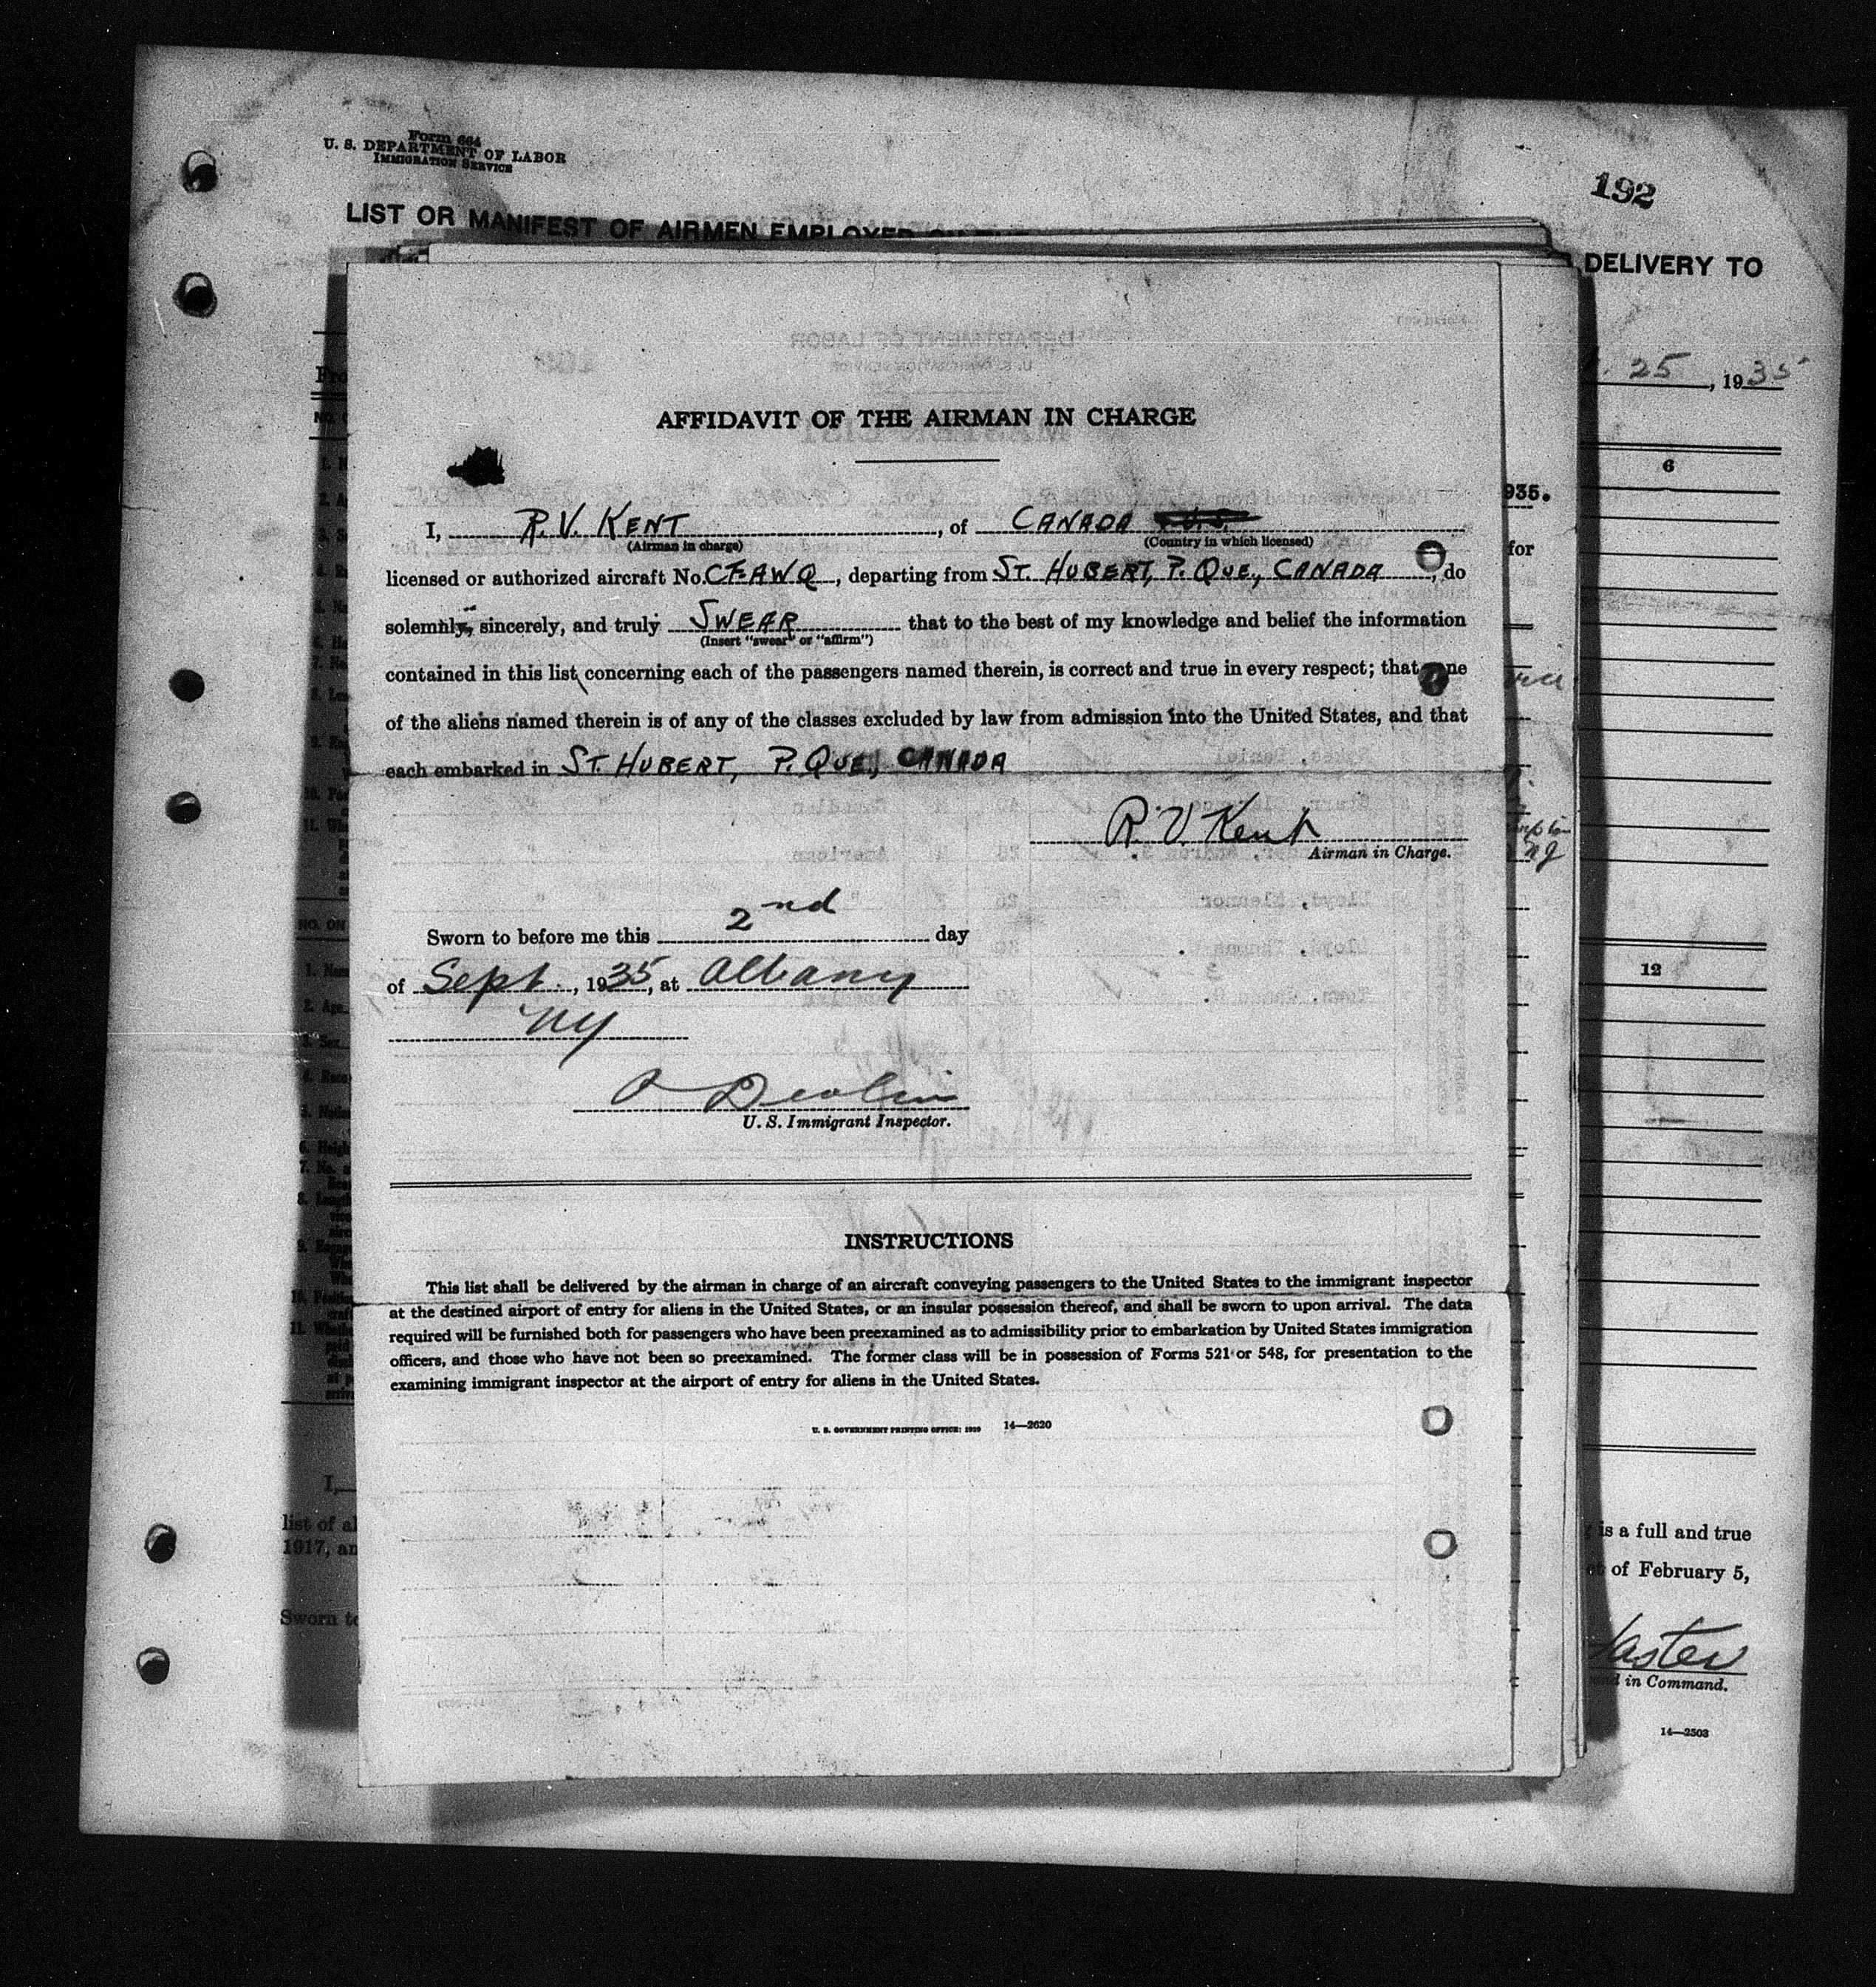 Form 664
U. S. DEPARTMENT OF LABOR
IMMIGRATION SERVICE
192
LIST OR MANIFEST OF AIRMEN EMPLOYED
DELIVERY TO
25, 1935
6
935.
for
AFFIDAVIT OF THE AIRMAN IN CHARGE
I, R. V. KENT, of CANADA
(Airman in charge) (Country in which licensed)
licensed or authorized aircraft No. CF-AWQ, departing from ST. HUBERT, P. QUE., CANADA, do
solemnly, sincerely, and truly SWEAR that to the best of my knowledge and belief the information
(Insert "swear" or "affirm")
contained in this list concerning each of the passengers named therein, is correct and true in every respect; that ne
of the aliens named therein is of any of the classes excluded by law from admission into the United States, and that
each embarked in ST. HUBERT, P. QUE., CANADA
R. V. Kent
Airman in Charge.
Sworn to before me this 2nd day
of Sept., 1935, at Albany
NY
Devlin
U. S. Immigrant Inspector.
12
INSTRUCTIONS
This list shall be delivered by the airman in charge of an aircraft conveying passengers to the United States to the immigrant inspector
at the destined airport of entry for aliens in the United States, or an insular possession thereof, and shall be sworn to upon arrival. The data
required will be furnished both for passengers who have been preexamined as to admissibility prior to embarkation by United States immigration
officers, and those who have not been so preexamined. The former class will be in possession of Forms 521 or 548, for presentation to the
examining immigrant inspector at the airport of entry for aliens in the United States.
U. S. GOVERNMENT PRINTING OFFICE: 1929 14—2620
I,
list of al
1917, an
Sworn to
is a full and true
of February 5,
in Command.
14—2503